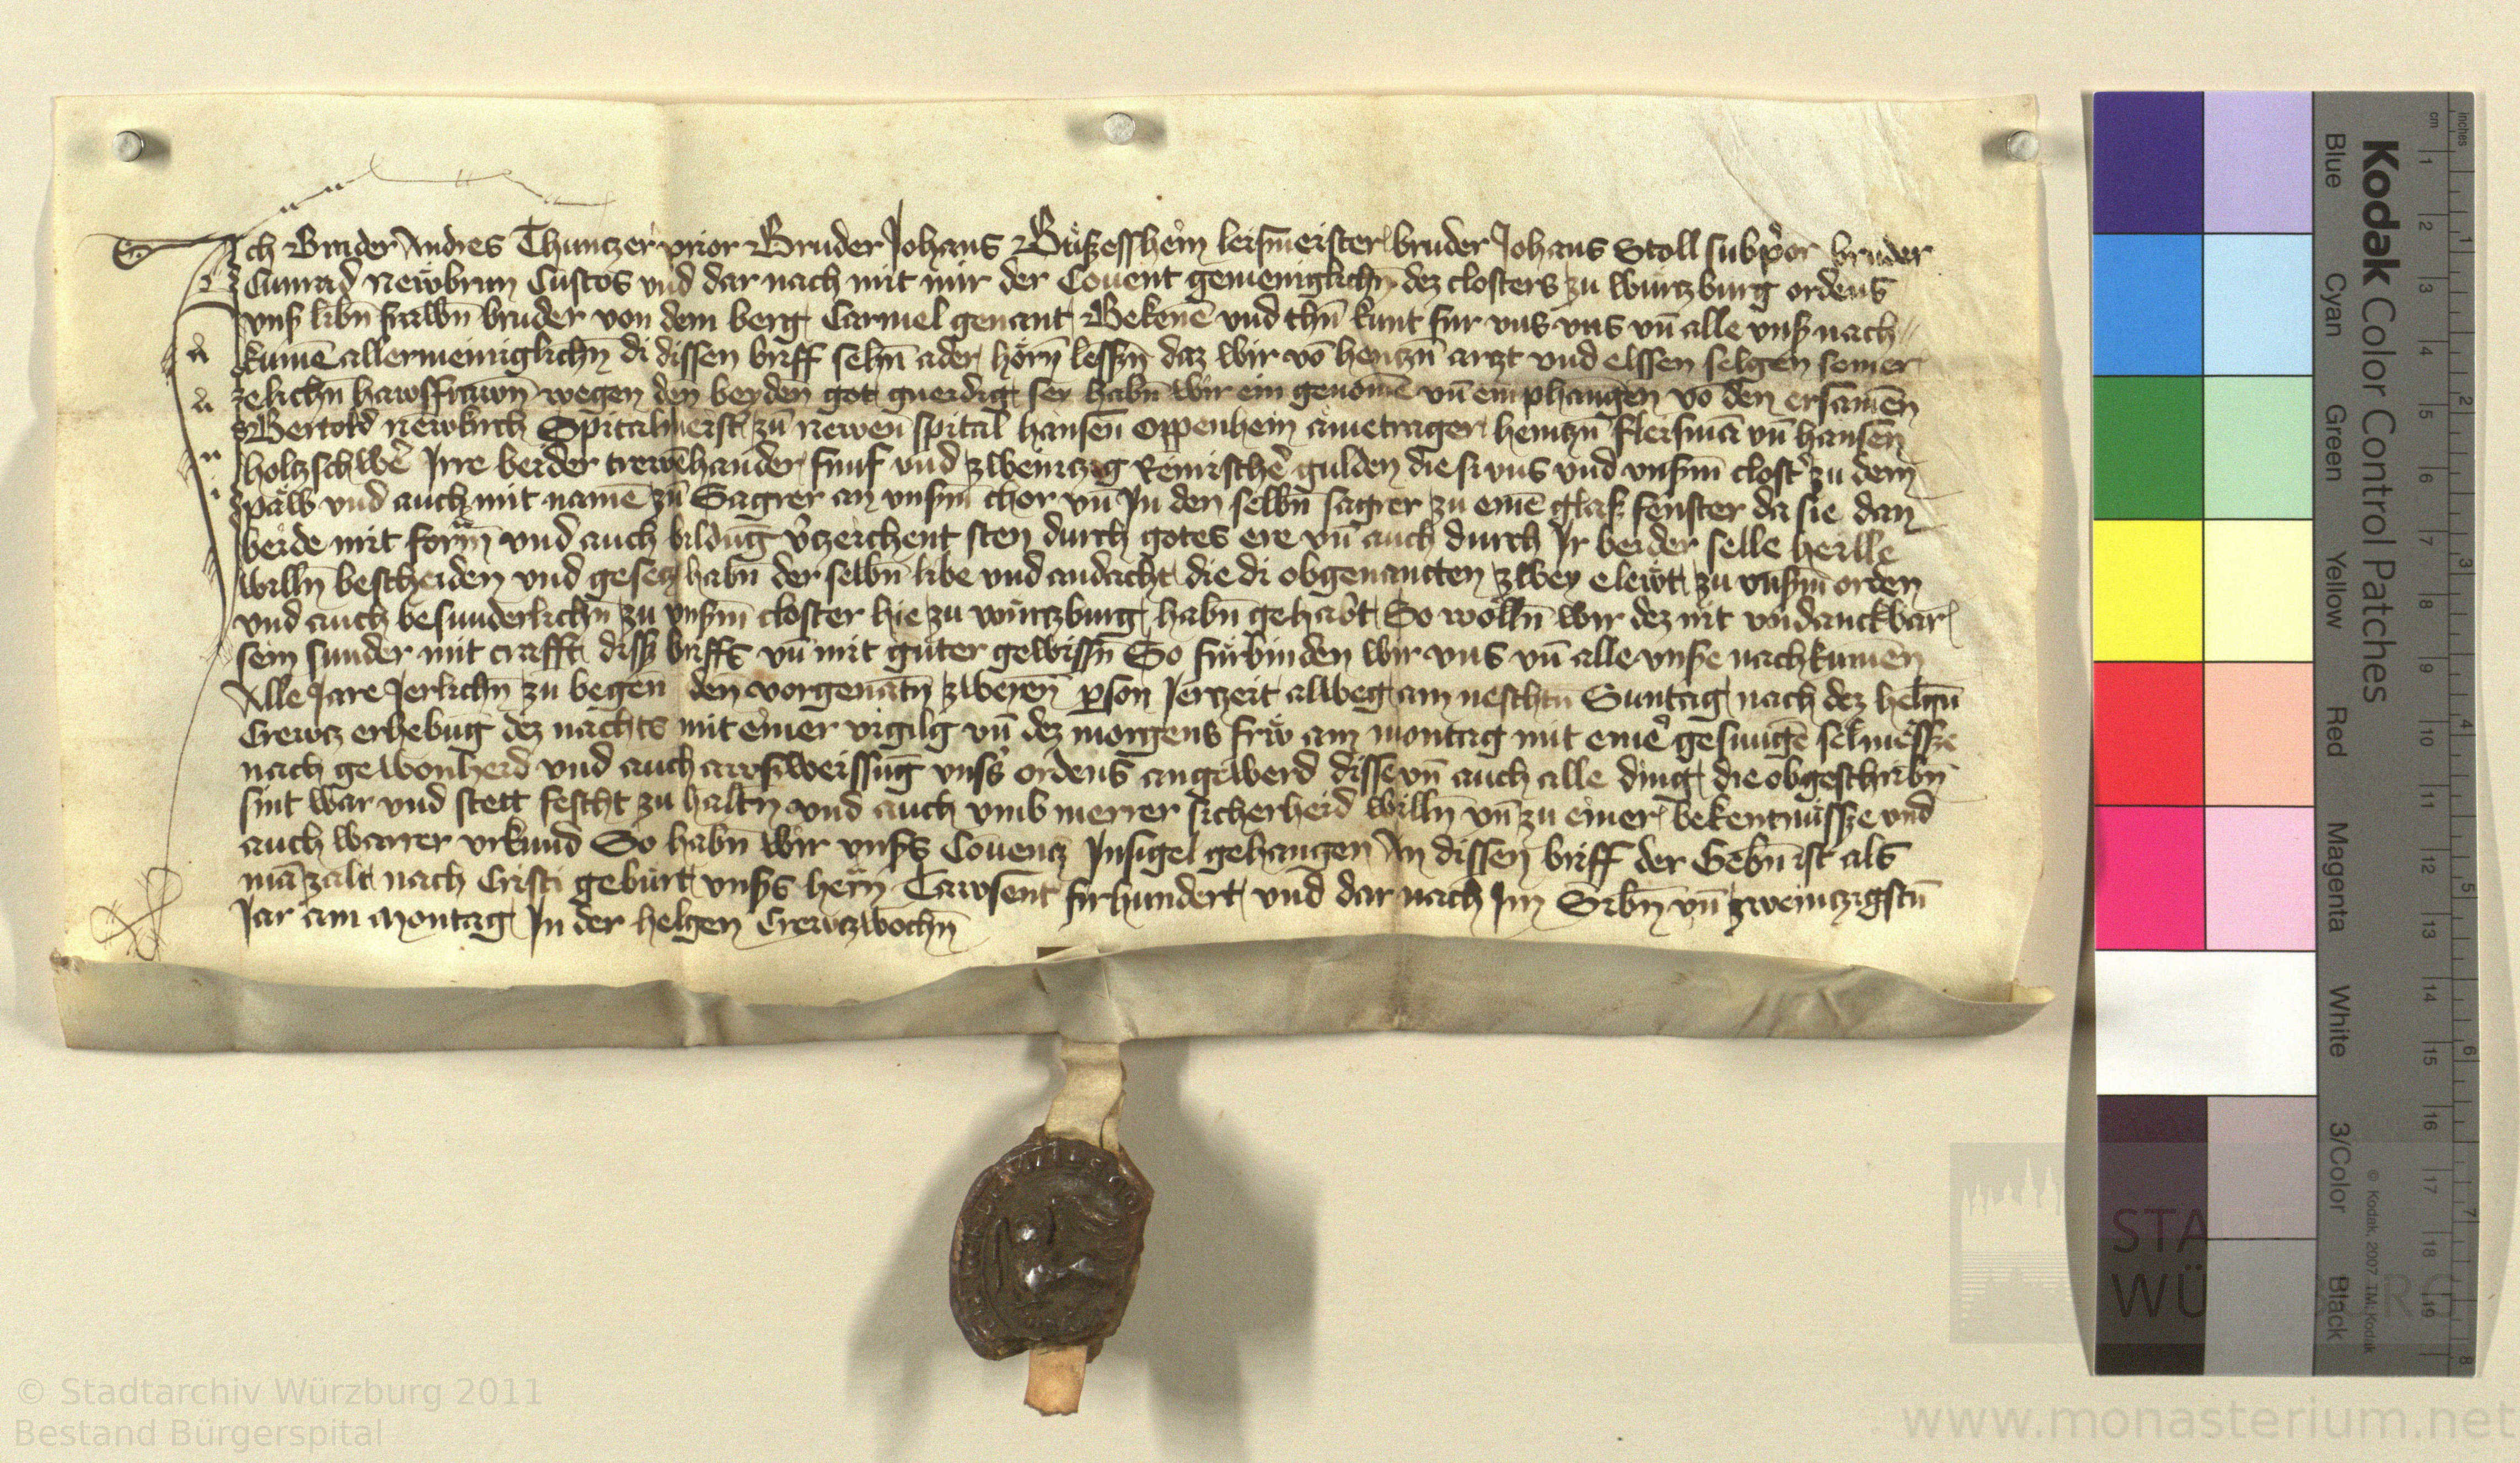 Ich Bruder Andres Thunczer prior Bruder Johans Bußesshem leismeister bruder Johans Stoll subprior bruder
Cunrad Newbrun Custos vnd dar nach mit mir der Couent gemeniglichn̄ dez closters zu wurczburg ordens
vnsß libn̄ frawn̄ bruder von dem berg Carmel genant Bekenē vnd thūn kunt fur vns vns vn̄ alle vnsß nach
kumē allermeiniglichn̄ di dissen briff sehn̄ ader hörn̄ lessn̄ daz wir vō henczn̄ arzt vnd elssen selgen seiner
elichn̄ hawsfrawn̄ wegen den beyden got gnedig sey habn̄ wir ein genomē vn̄ emphangen vō den ersamēn
Bertold Newkirch Spitalmeist zū Newen spital hansen Oppenhein ametrager henczn̄ fleisman̄ vn̄ hansen
holczschwē Irre beider trewēhander funf vnd zweinczig Remischē gulden die si vns vnd vnsm̄ clost zu dem
paẘ vnd auch mit namē zū Sagrer an vnsm̄ chor vn̄ In den selbn̄ sagrer zu einē glaß fenster da sie dan
beide mit form̄ vnd auch bildūg v̉czeichent sten durch gotes ere vn̄ auch durch Ir beider selle heille
willn̄ bescheiden vnd gesecz habn̄ der selbn̄ libe vnd andacht die di obgenancten zwey elewt zu vnsm̄ orden
vnd auch besunderlichn̄ zu vnsm̄ closter hie zu wurczburg habn̄ gehabt So wolln̄ wir dez nit vndanckbar
sein sunder mit crafft diß briffs vn̄ mit guter gewissn̄ So furbinden wir vns vn̄ alle vnsße nachkumen
Alle Jare Jerlichn̄ zu begen den vorgenatn̄ zweyen pson Jerczeit alweg am neschtn̄ Suntag nach dez helgn̄
Crewcz erhebūg dez nachts mit einer vigilg vn̄ dez morgens frẘ am montag mit einē gesungē selmesße
nach gewonheid vnd auch awßweissūg vnsß ordens angewerd disse vn̄ auch alle ding die obgeschribn̄
sint war vnd stett fescht zu haltn̄ vnd auch vmb merrer sicherheid willn̄ vn̄ zu einer bekentnusße vnd
auch warrer vrkund So habn̄ wir vnsßs Couencz Insigel gehangen An dissen briff der Gebn̄ ist als
mā zalt nach Cristi geburt vnsßs hern̄ Tawsent firhundert vnd dar nach Im Sibn̄ vn̄ zweinczigstn̄
Jar am Montag In der helgen Crewczwochn̄
Kodak Color Control Patches
Blue Cyan Green Yellow Red Magenta White 3/Color Black
© Kodak, 2007 TM: Kodak
cm 1 2 3 4 5 6 7 8 9 10 11 12 13 14 15 16 17 18 19
inches 1 2 3 4 5 6 7 8
© Stadtarchiv Würzburg 2011
Bestand Bürgerspital
www.monasterium.net